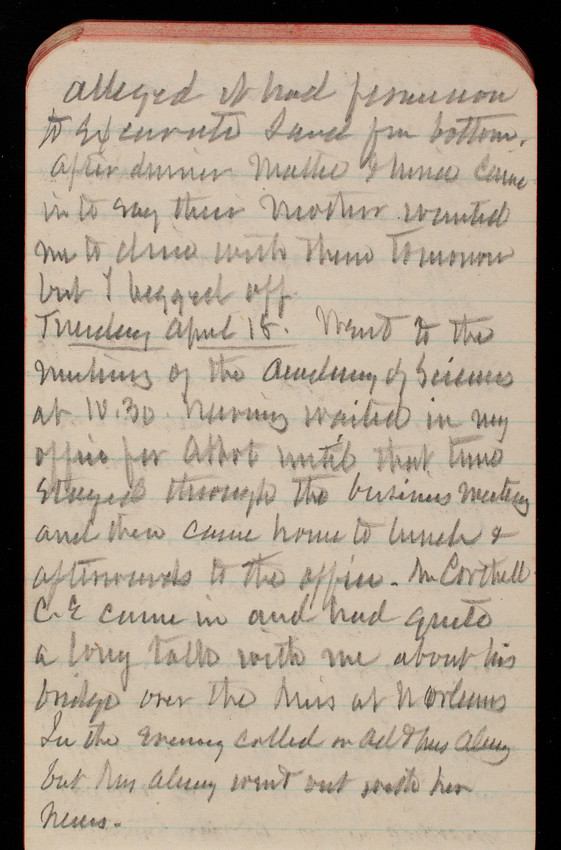 alleged it had permission
to Excavate Sand from bottom.
After dinner Mattie & Nina came
in to say their Mother wanted
me to dine with them tomorrow
but I begged off
Tuesday April 18. Went to the
meeting of the Academy of Sciences
at 10.30 having waited in my
office for Abbot until that time
Stayed through the business meeting
and then came home to lunch &
afterwards to the office. Mr Corthell
C.E came in and had quite
a long talk with me about his
bridge over the Miss at N Orleans
In the Evening called on Ad & Mrs Almy
but Mrs Almy went out with her